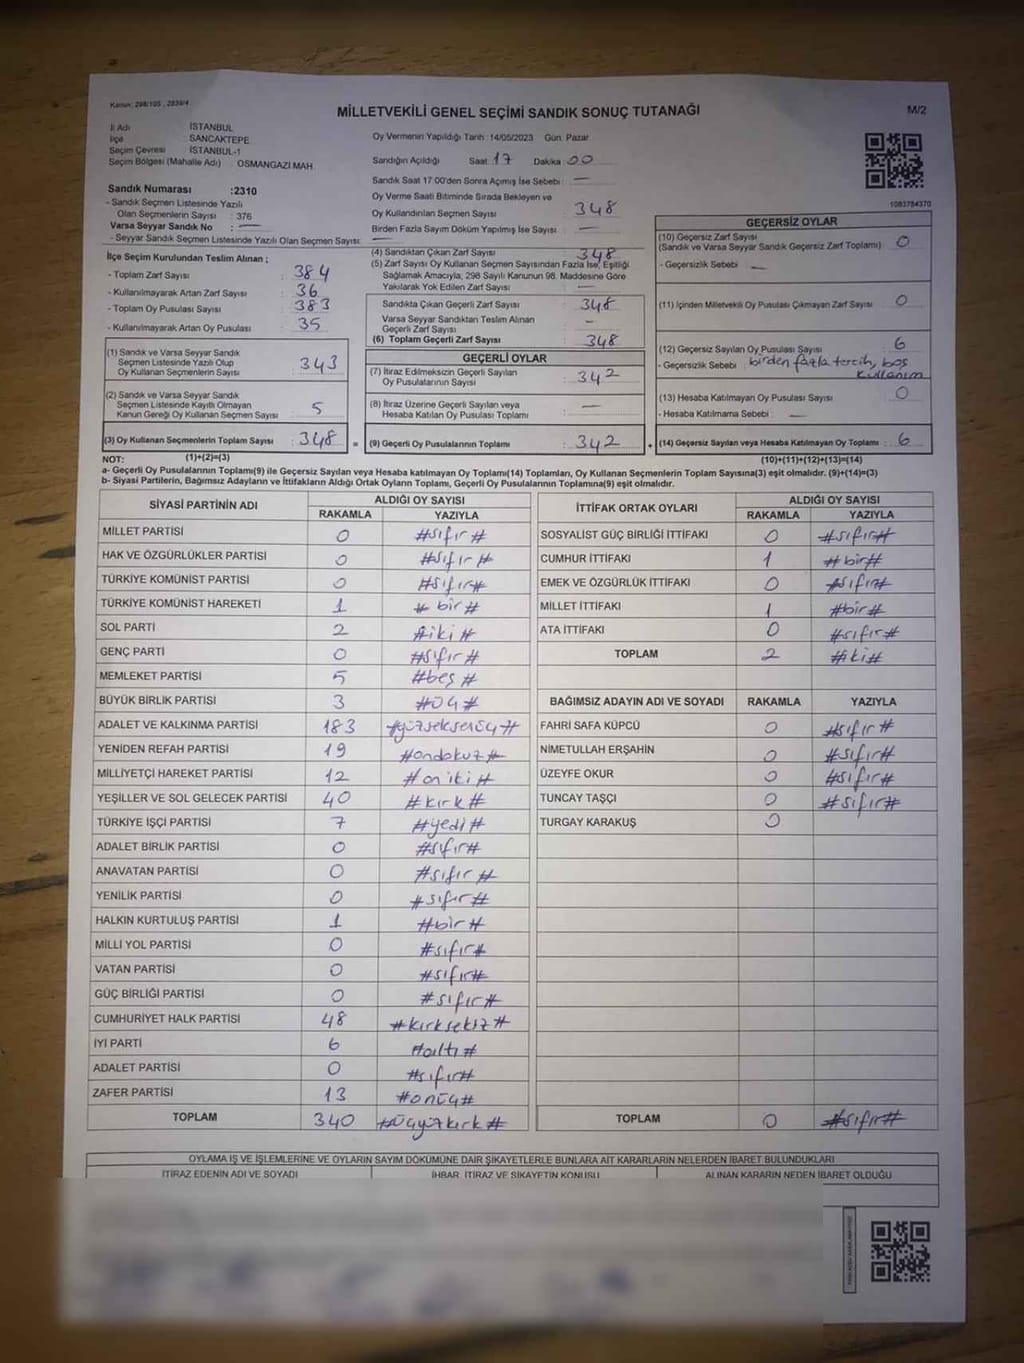 Kanun: 298/105 , 2839/4
MİLLETVEKİLİ GENEL SEÇİMİ SANDIK SONUÇ TUTANAĞI
M/2
İl Adı İSTANBUL
İlçe SANCAKTEPE
Seçim Çevresi İSTANBUL-1
Seçim Bölgesi (Mahalle Adı) OSMANGAZİ MAH.
Sandık Numarası :2310
- Sandık Seçmen Listesinde Yazılı
Olan Seçmenlerin Sayısı : 376
Varsa Seyyar Sandık No : —
- Seyyar Sandık Seçmen Listesinde Yazılı Olan Seçmen Sayısı: —
İlçe Seçim Kurulundan Teslim Alınan ;
- Toplam Zarf Sayısı : 384
- Kullanılmayarak Artan Zarf Sayısı : 36
- Toplam Oy Pusulası Sayısı : 383
- Kullanılmayarak Artan Oy Pusulası : 35
(1) Sandık ve Varsa Seyyar Sandık
Seçmen Listesinde Yazılı Olup
Oy Kullanan Seçmenlerin Sayısı : 343
(2) Sandık ve Varsa Seyyar Sandık
Seçmen Listesinde Kayıtlı Olmayan
Kanun Gereği Oy Kullanan Seçmen Sayısı : 5
(3) Oy Kullanan Seçmenlerin Toplam Sayısı : 348
Oy Vermenin Yapıldığı Tarih : 14/05/2023 Gün: Pazar
Sandığın Açıldığı Saat : 17 Dakika : 00
Sandık Saat 17:00'den Sonra Açımış İse Sebebi : —
Oy Verme Saati Bitiminde Sırada Bekleyen ve
Oy Kullandırılan Seçmen Sayısı : 348
Birden Fazla Sayım Döküm Yapılmış İse Sayısı : —
(4) Sandıktan Çıkan Zarf Sayısı : 348
(5) Zarf Sayısı Oy Kullanan Seçmen Sayısından Fazla İse, Eşitliği
Sağlamak Amacıyla, 298 Sayılı Kanunun 98. Maddesine Göre
Yakılarak Yok Edilen Zarf Sayısı : —
Sandıkta Çıkan Geçerli Zarf Sayısı : 348
Varsa Seyyar Sandıktan Teslim Alınan
Geçerli Zarf Sayısı : —
(6) Toplam Geçerli Zarf Sayısı : 348
GEÇERLİ OYLAR
(7) İtiraz Edilmeksizin Geçerli Sayılan
Oy Pusulalarının Sayısı : 342
(8) İtiraz Üzerine Geçerli Sayılan veya
Hesaba Katılan Oy Pusulası Toplamı : —
= (9) Geçerli Oy Pusulalarının Toplamı : 342
1083784370
GEÇERSİZ OYLAR
(10) Geçersiz Zarf Sayısı
(Sandık ve Varsa Seyyar Sandık Geçersiz Zarf Toplamı) : 0
- Geçersizlik Sebebi : —
(11) İçinden Milletvekili Oy Pusulası Çıkmayan Zarf Sayısı : 0
(12) Geçersiz Sayılan Oy Pusulası Sayısı : 6
- Geçersizlik Sebebi : birden fazla tercih, boş
kullanım
(13) Hesaba Katılmayan Oy Pusulası Sayısı : 0
- Hesaba Katılmama Sebebi : —
+ (14) Geçersiz Sayılan veya Hesaba Katılmayan Oy Toplamı : 6
NOT: (1)+(2)=(3) (10)+(11)+(12)+(13)=(14)
a- Geçerli Oy Pusulalarının Toplamı(9) ile Geçersiz Sayılan veya Hesaba katılmayan Oy Toplamı(14) Toplamları, Oy Kullanan Seçmenlerin Toplam Sayısına(3) eşit olmalıdır. (9)+(14)=(3)
b- Siyasi Partilerin, Bağımsız Adayların ve İttifakların Aldığı Ortak Oyların Toplamı, Geçerli Oy Pusulalarının Toplamına(9) eşit olmalıdır.
SİYASİ PARTİNİN ADI ALDIĞI OY SAYISI
RAKAMLA YAZIYLA
MİLLET PARTİSİ 0 #sıfır#
HAK VE ÖZGÜRLÜKLER PARTİSİ 0 #sıfır#
TÜRKİYE KOMÜNİST PARTİSİ 0 #sıfır#
TÜRKİYE KOMÜNİST HAREKETİ 1 #bir#
SOL PARTİ 2 #iki#
GENÇ PARTİ 0 #sıfır#
MEMLEKET PARTİSİ 5 #beş#
BÜYÜK BİRLİK PARTİSİ 3 #üç#
ADALET VE KALKINMA PARTİSİ 183 #yüzseksenüç#
YENİDEN REFAH PARTİSİ 19 #ondokuz#
MİLLİYETÇİ HAREKET PARTİSİ 12 #oniki#
YEŞİLLER VE SOL GELECEK PARTİSİ 40 #kırk#
TÜRKİYE İŞÇİ PARTİSİ 7 #yedi#
ADALET BİRLİK PARTİSİ 0 #sıfır#
ANAVATAN PARTİSİ 0 #sıfır#
YENİLİK PARTİSİ 0 #sıfır#
HALKIN KURTULUŞ PARTİSİ 1 #bir#
MİLLİ YOL PARTİSİ 0 #sıfır#
VATAN PARTİSİ 0 #sıfır#
GÜÇ BİRLİĞİ PARTİSİ 0 #sıfır#
CUMHURİYET HALK PARTİSİ 48 #kırksekiz#
İYİ PARTİ 6 #altı#
ADALET PARTİSİ 0 #sıfır#
ZAFER PARTİSİ 13 #onüç#
TOPLAM 340 #üçyüzkırk#
İTTİFAK ORTAK OYLARI ALDIĞI OY SAYISI
RAKAMLA YAZIYLA
SOSYALİST GÜÇ BİRLİĞİ İTTİFAKI 0 #sıfır#
CUMHUR İTTİFAKI 1 #bir#
EMEK VE ÖZGÜRLÜK İTTİFAKI 0 #sıfır#
MİLLET İTTİFAKI 1 #bir#
ATA İTTİFAKI 0 #sıfır#
TOPLAM 2 #iki#
BAĞIMSIZ ADAYIN ADI VE SOYADI RAKAMLA YAZIYLA
FAHRİ SAFA KÜPCÜ 0 #sıfır#
NİMETULLAH ERŞAHİN 0 #sıfır#
ÜZEYFE OKUR 0 #sıfır#
TUNCAY TAŞÇI 0 #sıfır#
TURGAY KARAKUŞ 0
TOPLAM 0 #sıfır#
OYLAMA İŞ VE İŞLEMLERİNE VE OYLARIN SAYIM DÖKÜMÜNE DAİR ŞİKAYETLERLE BUNLARA AİT KARARLARIN NELERDEN İBARET BULUNDUKLARI
İTİRAZ EDENİN ADI VE SOYADI İHBAR, İTİRAZ VE ŞİKAYETİN KONUSU ALINAN KARARIN NEDEN İBARET OLDUĞU